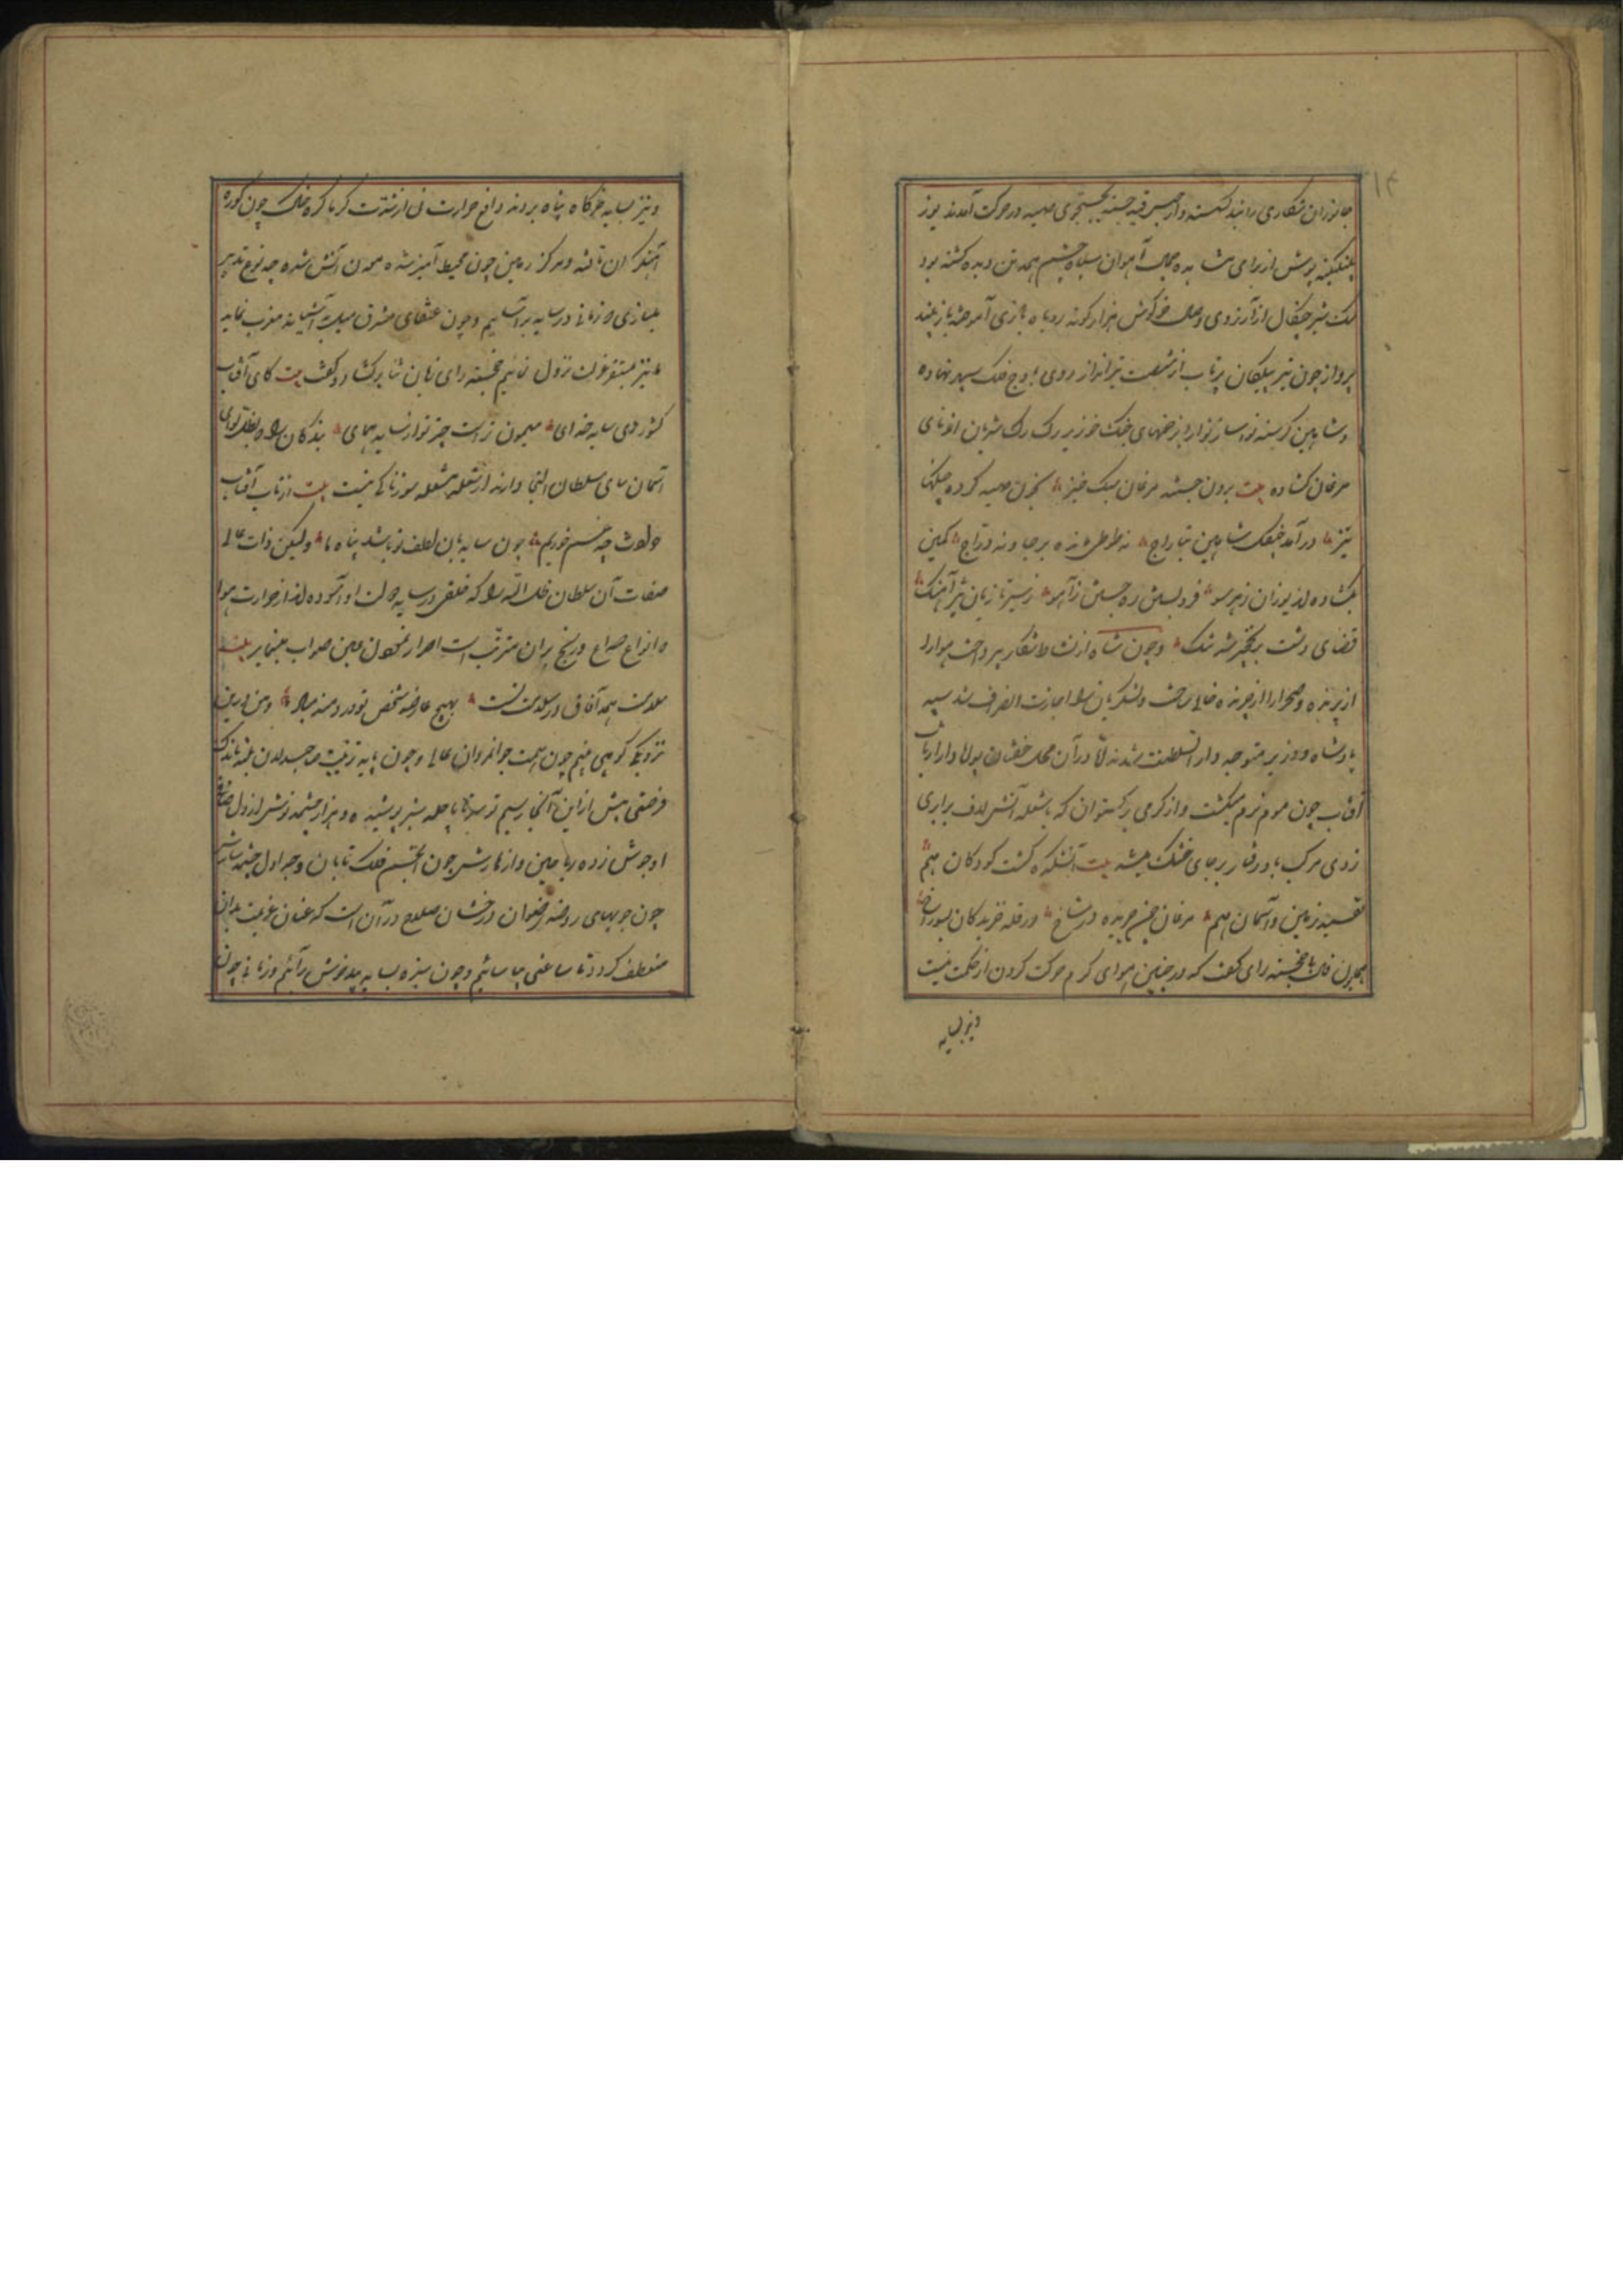 جانوران شکاری را بند گسسته و از حبس قید جسته بجستجوی صید در حرکت آمدند یوز
پلنگینه پوش از برای مشاهده جمال آهوان سیاه چشم همه تن دیده گشته بود
سک شیر چنگال از آرزوی وصال خرگوش هزار گونه روباه بازی آموخته باز بلند
پرواز چون تیر پیکان پرتاب از شصت تیرانداز روی باوج فلک سپهر نهاده
و شاهین گرسنه نواساز بزخمهای چنک خونریز رک رک شریان از نای
مرغان گشاده بیت برون جستند مرغان سبک خیز بخون صید کرده چنگها
تیز در آمد چنگ شاهین بتاراج نه طوطی مانده برجا و نه دراج کمین
بگشاده از یوزان ز هر سو فرو بسته ره جستن ز آهو ز سیر تازیان تیز آهنگ
فضای دشت بر نخجیر شد تنگ و چون شاه از نشاط شکار بپرداخت هوا را
از پرنده و صحرا را از چرنده خالی ساخت لشکریان را اجازت انصراف شد سپه
پادشاه و وزیر متوجه دار السلطنت شدند اما در آن محل خفتان پولاد را از تاب
آفتاب چون موم نرم میگشت و از گرمی برگستوان که با شعله آتش لاف برابری
زدی مرکب باد رفتار بر جای خشک میشد بیت آتشکده گشت کوه و کان هم
تفسید زمین و آسمان هم مرغان چمن خزیده در شاخ در قله خزندگان بسوراخ
همایون فال با خجسته رای گفت که در چنین هوای گرم حرکت کردن از حکمت نیست
و نیز بسایه
و نیز بسایه خرگاه پناه بردن دافع حرارت نی از شدت گرما کره خاک چون کوره
آهنگران تافته و مرکز زمین چون محیط اثیر شده معدن آتش شده چه نوع تدبیر
میسازی که زمانی در سایه بر آساییم و چون عنقای مشرق میل به آشیانه مغرب نماید
ما نیز بمستقر عزت نزول نمائیم خجسته رای زبان ثنا برگشاد و گفت بیت کای آفتاب
کشور وی سایه خدای میمون تر است چتر تو از سایه همای بندگان را که بظل لوای
آسمان سای سلطان التجا دارند از شعله مشعله سوز باکی نیست بیت از تاب آفتاب
حوادث چه غم خوریم چون سایه بان لطف تو باشد پناه ما ولیکن ذات عالی
صفات آن سلطان ظل الله را که خلقی در سایه دولت او آسوده اند از حرارت هوا
و انواع صداع و رنج بران مترتب است احتراز نمودن عین صواب مینماید بیت
سلامت همه آفاق در سلامت تست بهیچ عارضه شخص تو دردمند مباد و من درین
نزدیکی کوهی میبینم چون همت جوانمردان عالی و چون پایه رتبت صاحبدلان بلند باندک
فرصتی پیش ازین آنجا رسیدم سراپا حله سبز پوشیده و هزار چشمه نوش از دل صافی
او جوش زده ریاحین و ازهارش چون انجم فلک تابان و جداول چشمه سارش
چون جویهای روضه رضوان درخشان صلاح در آن است که عنان عزیمت بدان
منعطف گردد تا ساعتی بیاسائیم و چون سبزه بسایه بید خوش برآئیم و زمانی چون